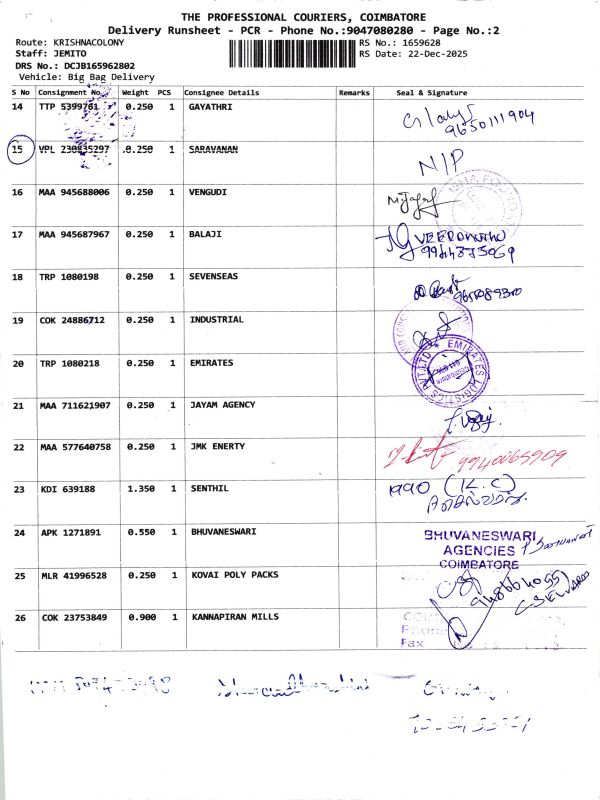 THE PROFESSIONAL COURIERS, COIMBATORE
Delivery Runsheet - PCR - Phone No.:9047080280 - Page No.:2
Route: KRISHNACOLONY
RS No.: 1659628
Staff: JEMITO
RS Date: 22-Dec-2025
DRS No.: DCJB165962802
Vehicle: Big Bag Delivery
S No Consignment No Weight PCS Consignee Details Remarks Seal & Signature
14 TTP 5399761 0.250 1 GAYATHRI
9650111904
15 VPL 230835297 0.250 1 SARAVANAN N/P
16 MAA 945688006 0.250 1 VENGUDI
17 MAA 945687967 0.250 1 BALAJI
18 TRP 1080198 0.250 1 SEVENSEAS
19 COK 24886712 0.250 1 INDUSTRIAL
20 TRP 1080218 0.250 1 EMIRATES EMIRATES LOGISTICS PVT LTD
21 MAA 711621907 0.250 1 JAYAM AGENCY
22 MAA 577640758 0.250 1 JMK ENERTY 9940065909
23 KDI 639188 1.350 1 SENTHIL 1990 (K.C)
24 APK 1271891 0.550 1 BHUVANESWARI BHUVANESWARI
AGENCIES
COIMBATORE
25 MLR 41996528 0.250 1 KOVAI POLY PACKS
26 COK 23753849 0.900 1 KANNAPIRAN MILLS
Phone
Fax